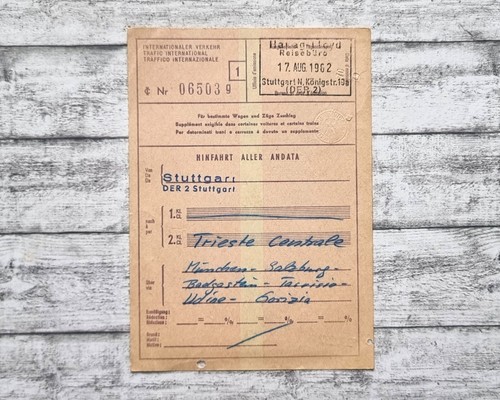 INTERNATIONALER VERKEHR
TRAFIC INTERNATIONAL
TRAFFICO INTERNAZIONALE
1
₵ Nr 06503 9
Reisebüro
17. AUG. 1962
Stuttgart N, Königstr.
(DER 2)
Für bestimmte Wagen und Züge Zuschlag
Supplément exigible dans certaines voitures et certains trains
Per determinati treni e carrozze è dovuto un supplemento
HINFAHRT ALLER ANDATA
Von
De
Da
Stuttgart
DER 2 Stuttgart
nach
à
per
1. KL.
CL.
2. KL.
CL.
Trieste Centrale
über
via
München - Salzburg -
Badgastein - Tarvisio -
Udine - Gorizia
Ermäßigung
Réduction
Riduzione
= % = % = %
Grund:
Motif:
Motivo: